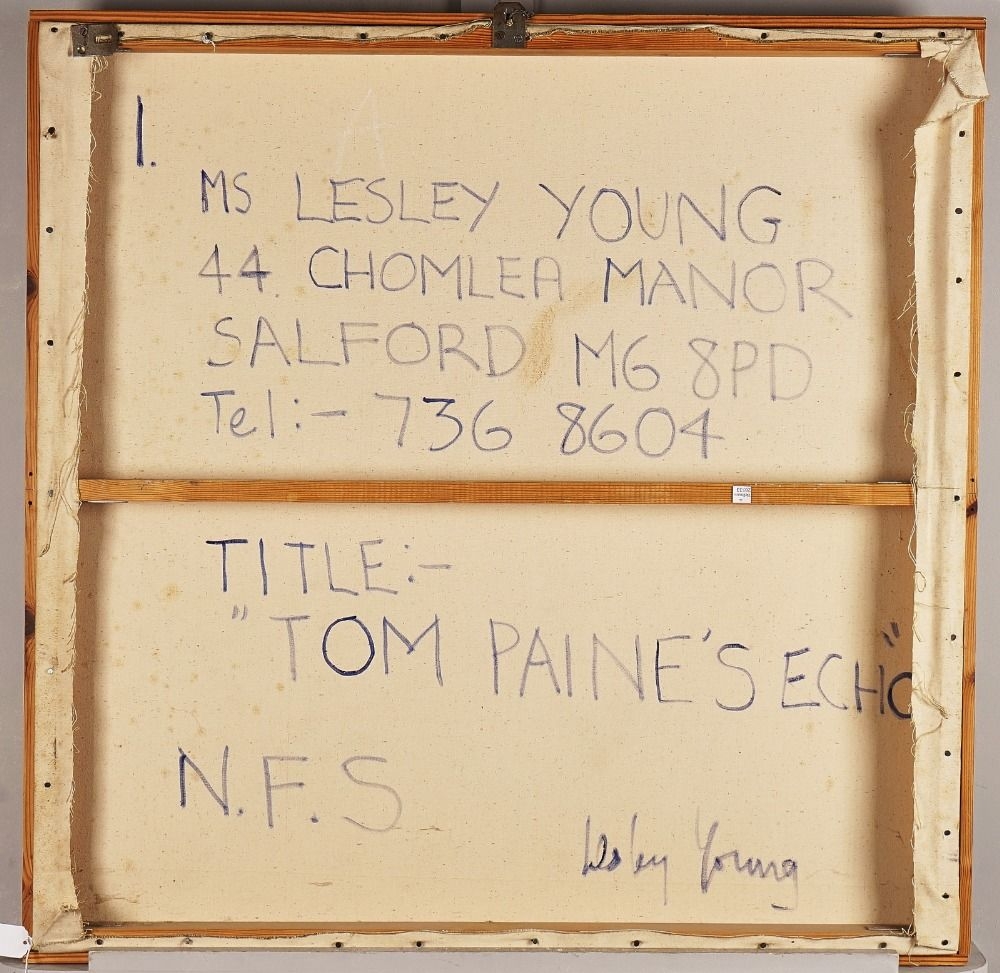 1.
MS LESLEY YOUNG
44 CHOMLEA MANOR
SALFORD M6 8PD
Tel:- 736 8604
TITLE:-
"TOM PAINE'S ECHO"
N.F.S
Lesley Young